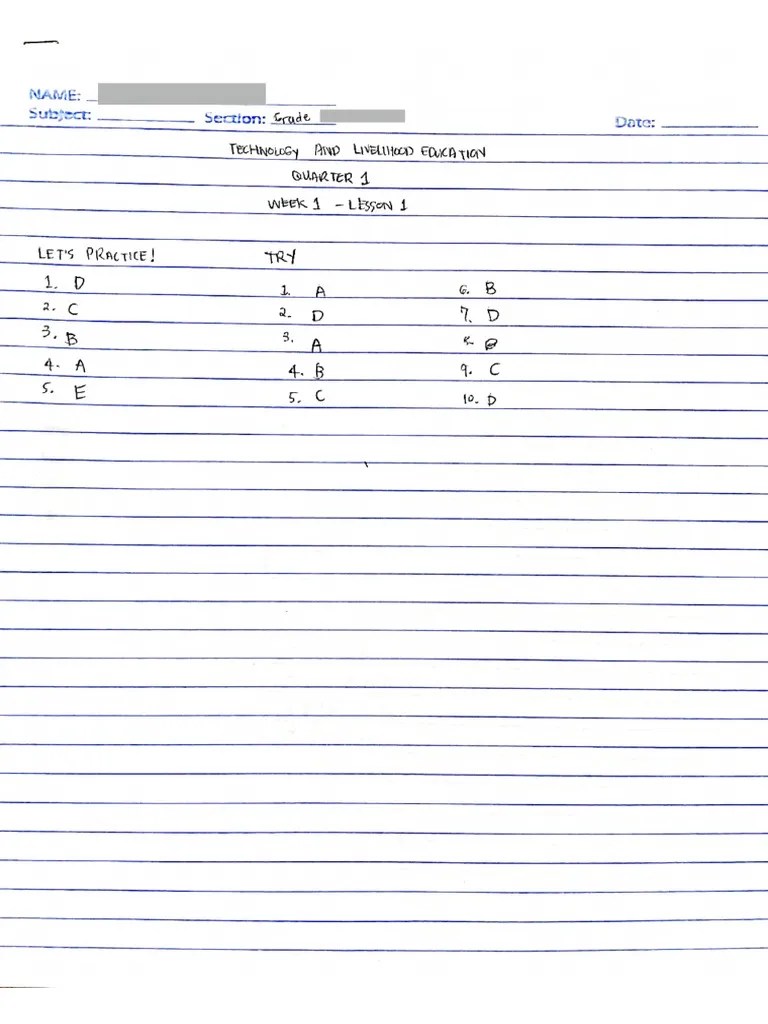 NAME:
Subject: Section: Grade Date:
TECHNOLOGY AND LIVELIHOOD EDUCATION
QUARTER 1
WEEK 1 - LESSON 1
LET'S PRACTICE!
1. D
2. C
3. B
4. A
5. E
TRY
1. A
2. D
3. A
4. B
5. C
6. B
7. D
8.
9. C
10. D